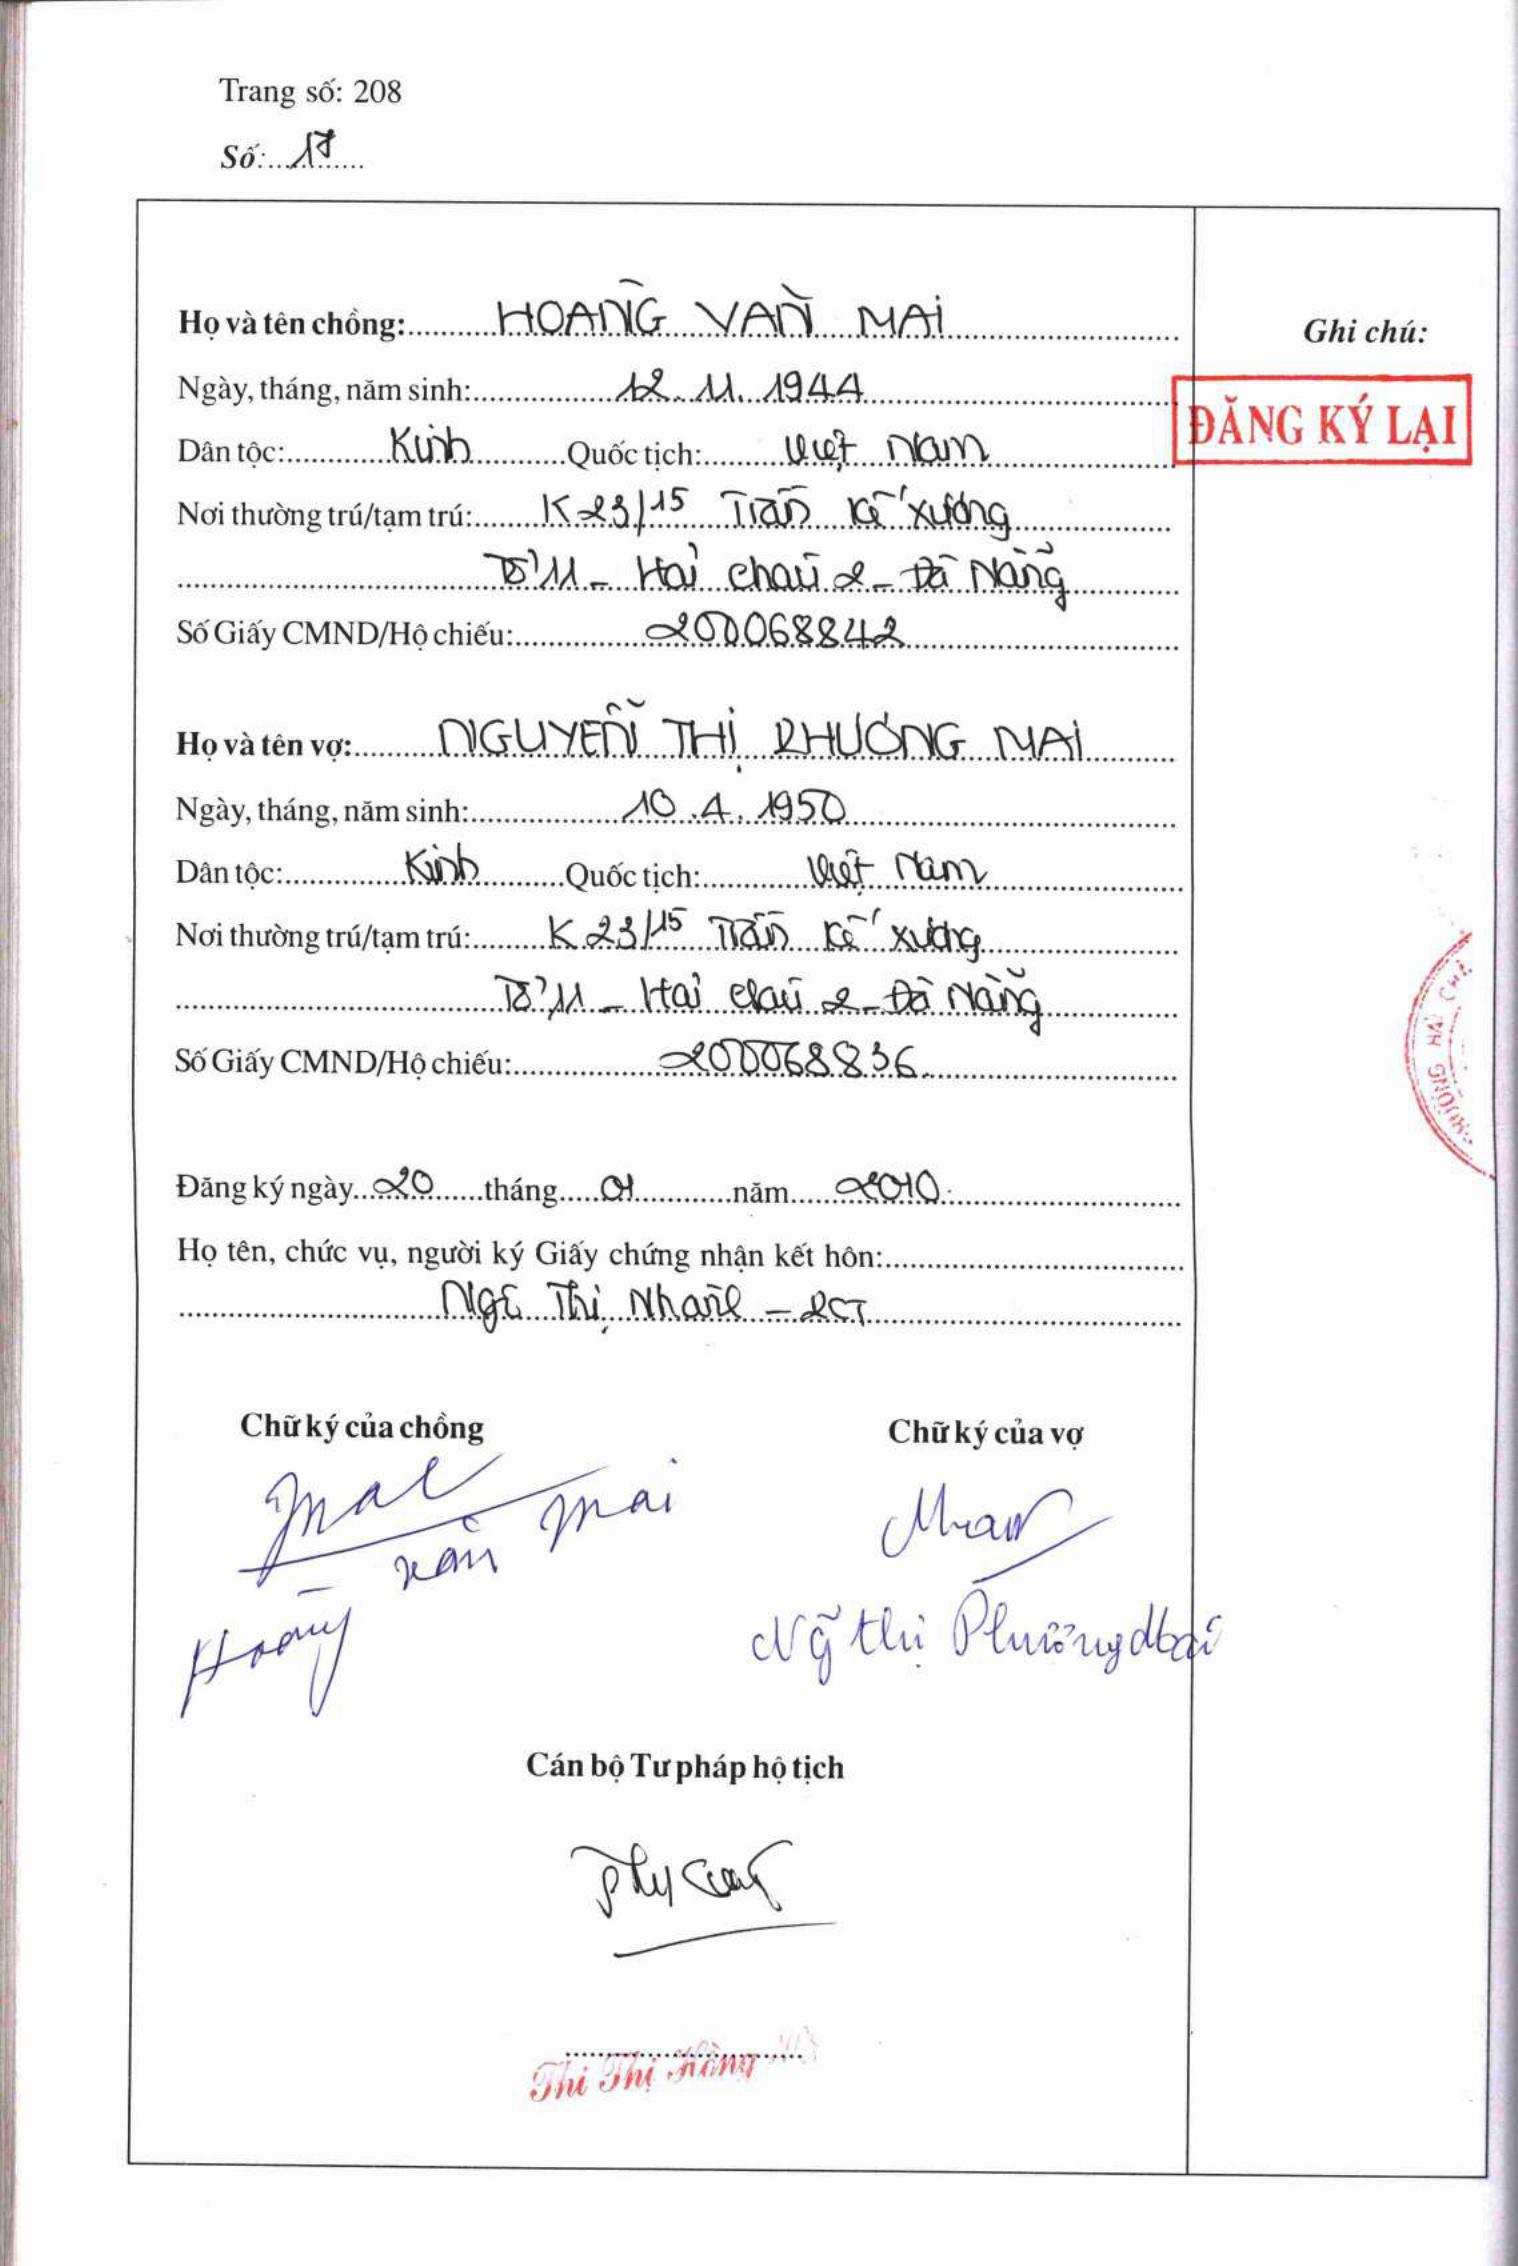 Trang số: 208
Số: 17
Họ và tên chồng: HOÀNG VĂN MAI
Ghi chú:
Ngày, tháng, năm sinh: 12.11.1944
ĐĂNG KÝ LẠI
Dân tộc: Kinh Quốc tịch: Việt Nam
Nơi thường trú/tạm trú: K23/15 Trần Kế Xương
Tổ 11 - Hải Châu 2 - Đà Nẵng
Số Giấy CMND/Hộ chiếu: 200068842
Họ và tên vợ: NGUYỄN THỊ PHƯƠNG MAI
Ngày, tháng, năm sinh: 10.4.1950
Dân tộc: Kinh Quốc tịch: Việt Nam
Nơi thường trú/tạm trú: K23/15 Trần Kế Xương
Tổ 11 - Hải Châu 2 - Đà Nẵng
Số Giấy CMND/Hộ chiếu: 200068836
Đăng ký ngày 20 tháng 01 năm 2010
Họ tên, chức vụ, người ký Giấy chứng nhận kết hôn:
Ngô Thị - PCT
Chữ ký của chồng
Chữ ký của vợ
Mai
Hoàng Văn Mai
Ng̃ thị Phương Mai
Cán bộ Tư pháp hộ tịch
Thi Thị Hồng